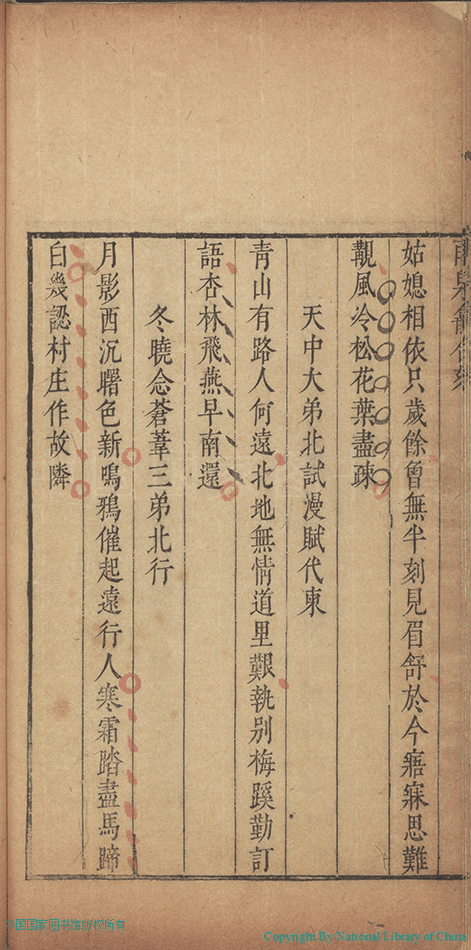 姑媳相依只歲餘曾無半刻見眉舒於今寤寐思難
覯風冷松花葉盡疎
天中大弟北試漫賦代柬
青山有路人何遠北地無情道里艱執別梅蹊勤訂
語杏林飛燕早南還
冬曉念蒼葦三弟北行
月影西沉曙色新鳴鴉催起遠行人寒霜踏盡馬蹄
白幾認村庄作故隣
中国国家图书馆版权所有
Copyright By National Library of China